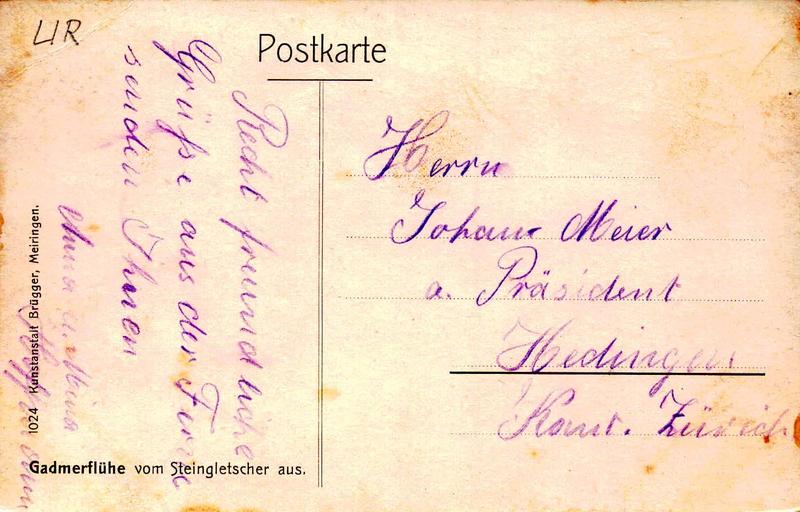 LIR
Postkarte
Recht freundliche
Grüße aus der Ferne
senden Ihnen
Anna u. Mina
Herrn
Johann Meier
a. Präsident
Hedingen
Kant. Zürich
1024 Kunstanstalt Brügger, Meiringen.
Gadmerflühe vom Steingletscher aus.